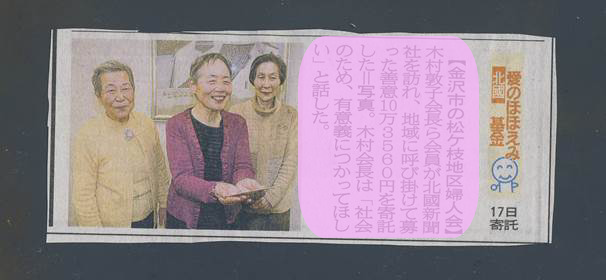 愛のほほえみ
北國
基金
17日
寄託
【金沢市の松ケ枝地区婦人会】
木村敦子会長ら会員が北國新聞
社を訪れ、地域に呼び掛けて募
った善意10万3560円を寄託
した＝写真。木村会長は「社会
のため、有意義につかってほし
い」と話した。